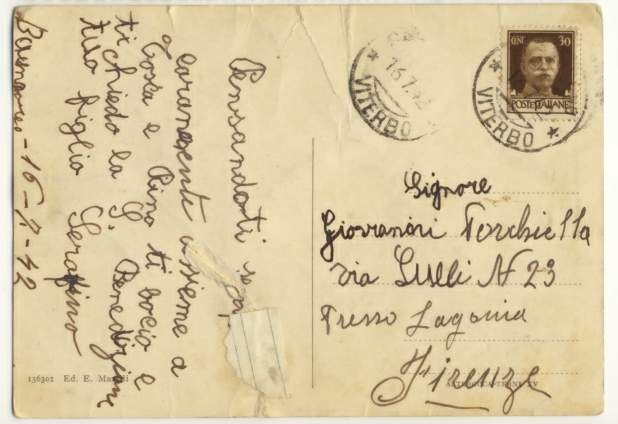 Pensandoti
caramente insieme a
e Pino ti bacio e
ti chiedo la S. Benedizione
tuo figlio Serafino
16-7-42
Signore
Giovanni Torchiella
Via Lulli N 23
Presso Lagonia
Firenze
CENT 30
POSTE ITALIANE
VITERBO
16.7.42
VITERBO
136302 Ed. E.